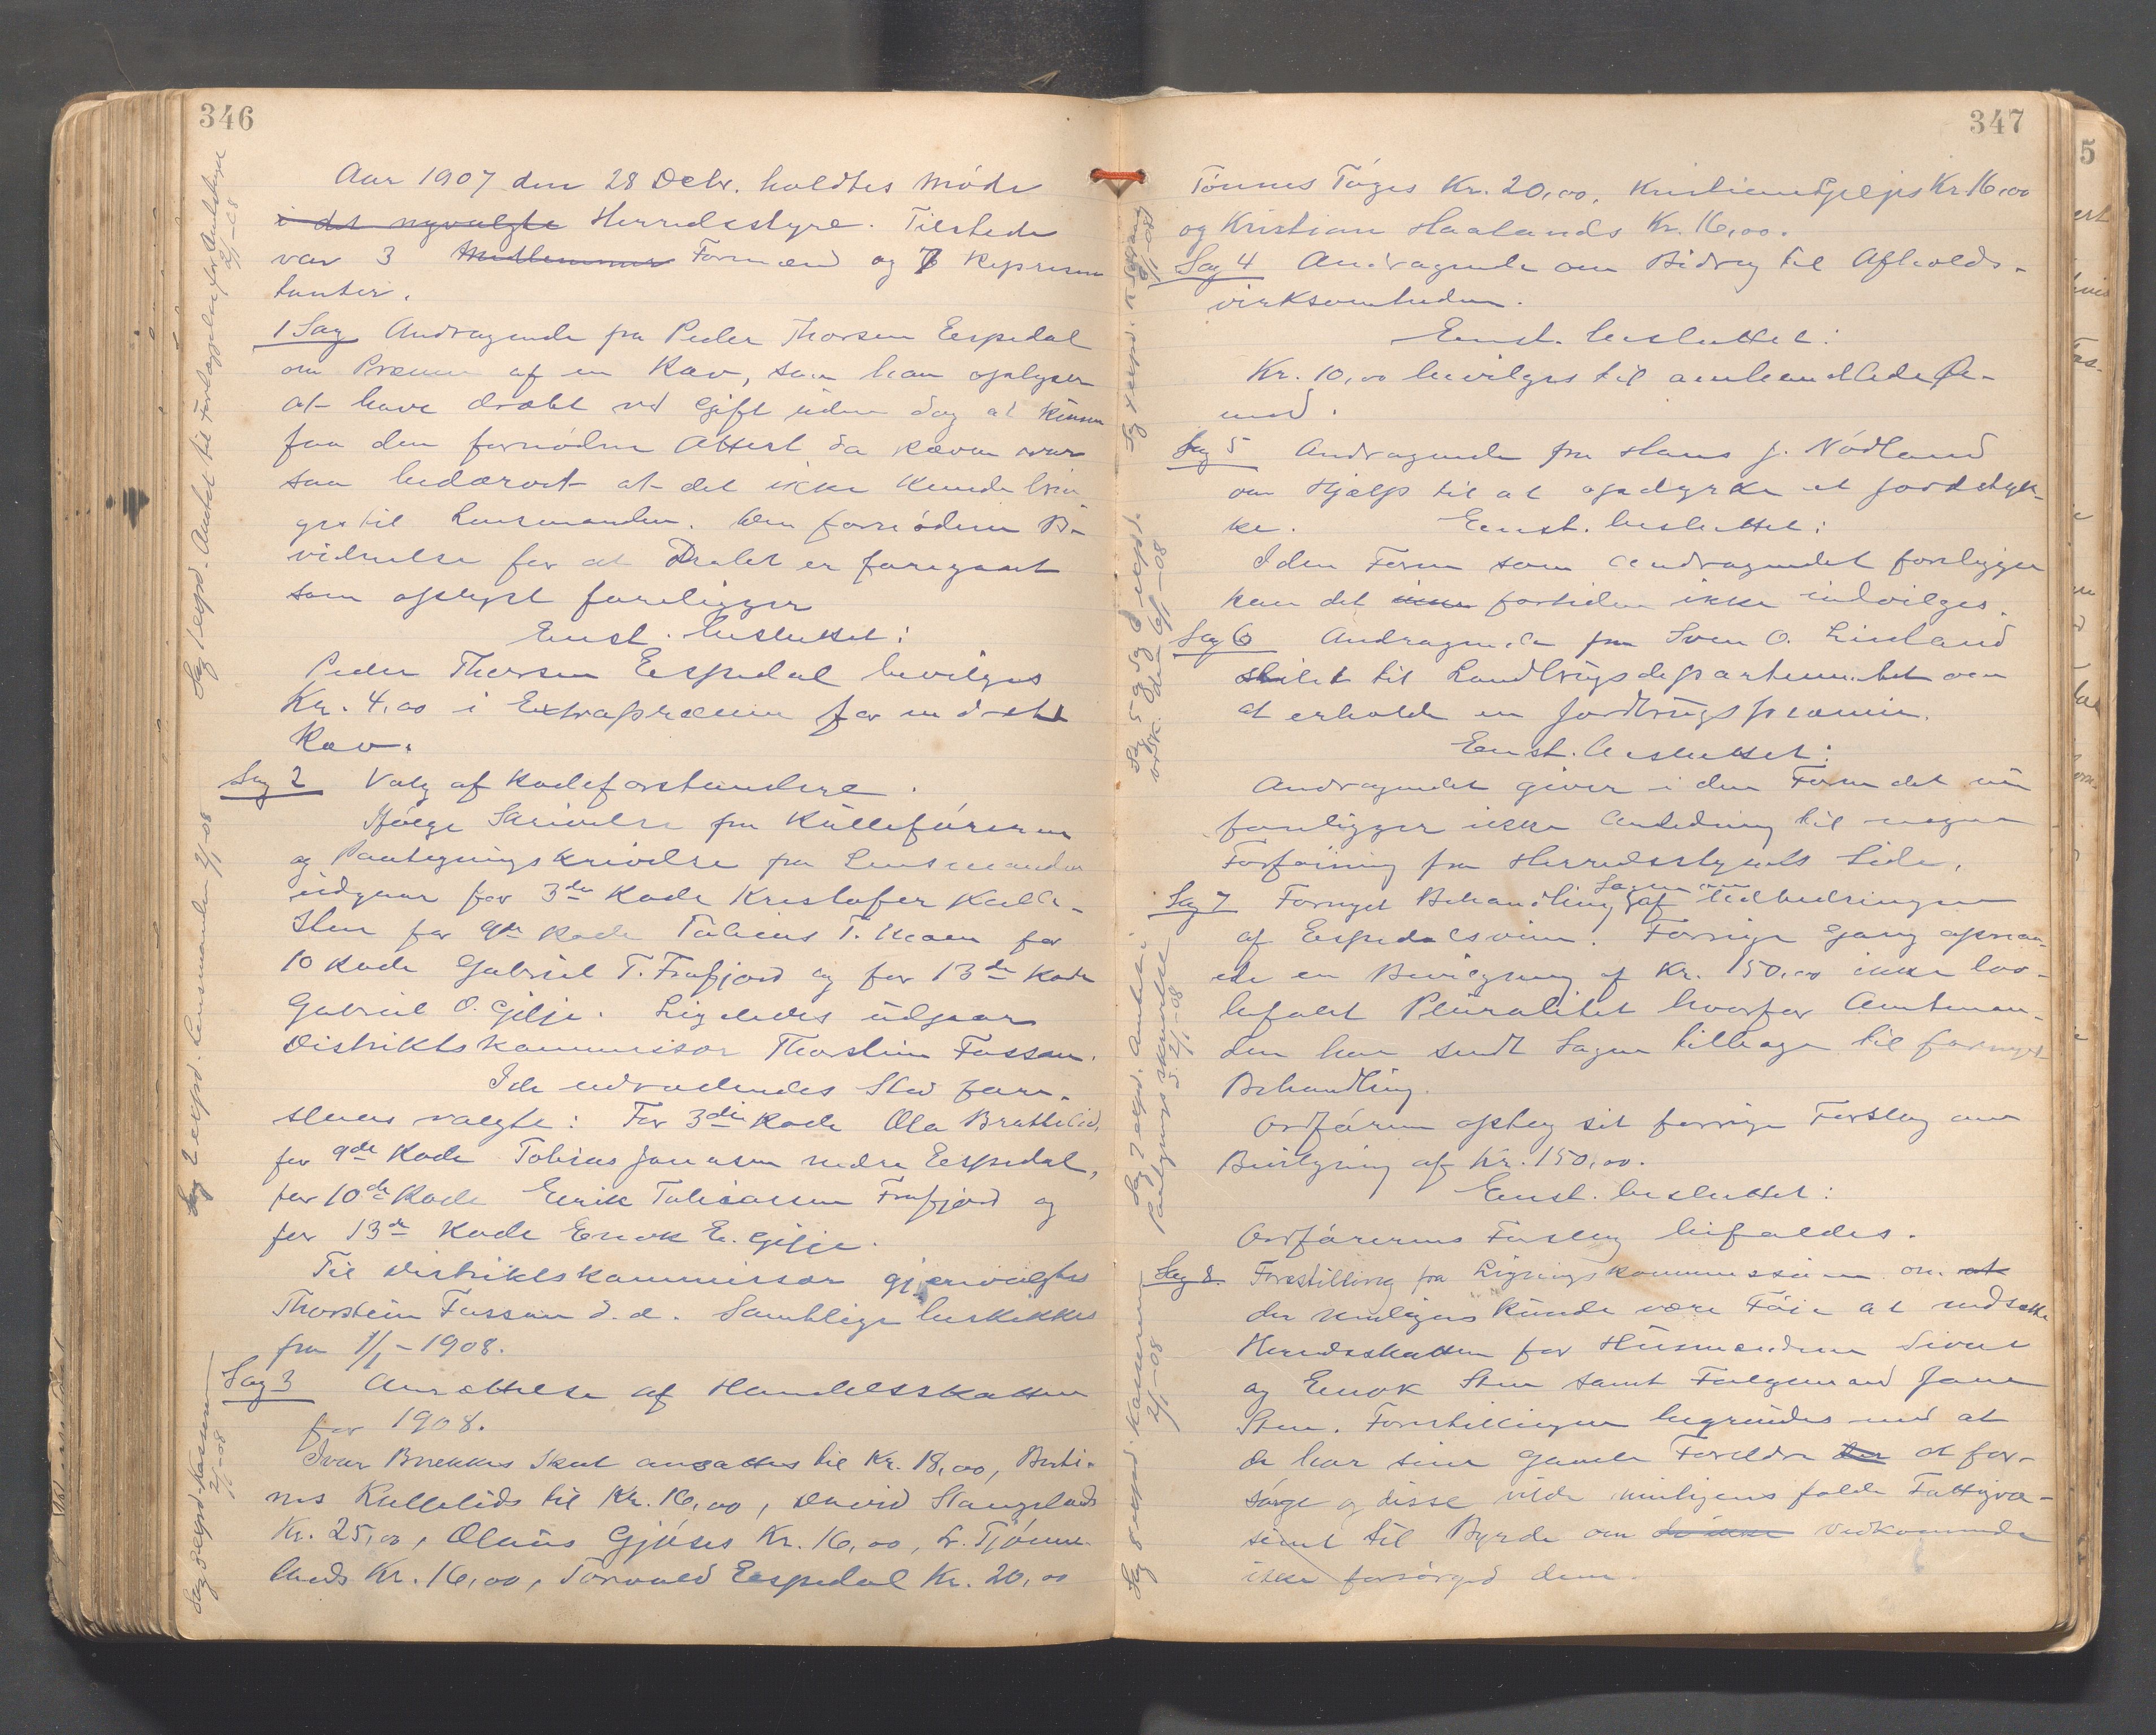 346
Aar 1907 den 28 Decbr. holdtes Møde
i det nyvalgte Herredsstyre. Tilstede
var 3 Medlemmer Formænd og 7 Repræsen
tanter.
1 Sag Andragende fra Peder Thorsen Eespedal
om Præmie af en Ræv, som han oplyser
at have dræbt ved Gift uden dog at kunne
faa den fornødne Attest da Ræven var
saa bedærvet at det ikke kunde brin
ges til Lensmanden. Den fornødne Be-
vidnelse for at Drabet er foregaaet
som oplyst foreligger
Enst. besluttet:
Peder Thorsen Eespedal bevilges
Kr. 4,00 i Extrapræmie for en dræbt
Ræv.
Sag 2 Valg af Rodeforstandere.
Ifølge Skrivelse fra Kulleføreren
og Paategningsskrivelse fra Lensmanden
udgaar for 3de Rode Kristofer Kalle-
Sten for 9de Rode Tobias T. Moen for
10 Rode Gabriel T. Frafjord og for 13de Rode
Gabriel O. Gilje. Ligeledes udgaar
Distriktskommissær Thorstein Fossan.
I de udtrædendes Sted fore-
sloges valgte: For 3die Rode Ola Brattelid,
for 9de Rode Tobias Jonasen nedre Eespedal,
for 10de Rode Eerik Tobiassen Frafjord og
for 13de Rode Enok E. Gilje.
Til Distriktskommissær gjenvalgtes
Thorstein Fossan d. æ. Samtlige beskikkes
fra 1/1-1908.
Sag 3 Ansættelse af Handelsskatten
for 1908.
Ivar Brekkes Skat ansættes til Kr. 18,00, Berti-
nes Kullelids til Kr. 16,00, David Stangelands
Kr. 25,00, Olaus Gjøses Kr. 16,00, L. Tjønne-
lands Kr. 16,00, Torvald Eespedal Kr. 20,00
Sag 1 expd. Amtet til Forelæggelse for Amtsting 2/1-08
Sag 2 expd. Lensmanden 2/1 08
Sag 3 expd. Kasseren 2/1-08
347
Tønnes Tøges Kr. 20,00, Kristian Giljes Kr 16,00
og Kristian Haalands Kr. 16,00.
Sag 4 Andragende om Bidrag til Afholds-
virksomheden.
Enst. besluttet:
Kr. 10,00 bevilges til omhandlede Øie-
med.
Sag 5 Andragende fra Hans J. Nødland
om Hjælp til at opdyrke et Jordstyk-
ke. Eenst. besluttet:
I den Form som Andragendet foreligger
kan det ikke fortiden ikke indvilges.
Sag 6 Andragende fra Sven O. Lindland
stilet til Landbrugsdepartementet om
at erholde en Jordbrugspræmie.
Eenst. besluttet:
Andragendet giver i den Form det nu
foreligger ikke Anledning til nogen
Forføining fra Herredsstyrets Side.
Sag 7 Fornyet Behandling af Sagen om Udbedringen
af Eespedalsveien. Forrige Gang opnaa-
ede en Bevilgning af Kr. 150,00 ikke lov-
befalet Pluralitet hvorfor Amtman-
den har sendt Sagen tilbage til fornyet
Behandling.
Ordføreren optog sit forrige Forslag om
Bevilgning af Kr. 150,00.
Eenst. besluttet:
Ordførerens Forslag bifaldes.
Sag 8. Forestilling fra Ligningskommissionen om at
der muligens kunde være Føie at nedsætte
Herredsskatten for Husmændene Sivert
og Enok Sten samt Folgemand Jone
Sten. Forestillingen begrundes med at
de har sine gamle Forældre der at for-
sørge og disse vilde muligens falde Fattigvæ-
senet til Byrde om de ikke vedkommende
ikke forsørged dem.
Sag 5 og Sag 6 expd. vedk. den 6/1-08
Sag 7 expd. Amtet i Paategningsskrivelse d. 2/1-08
Sag 8 expd. Kasseren 2/1-08
5